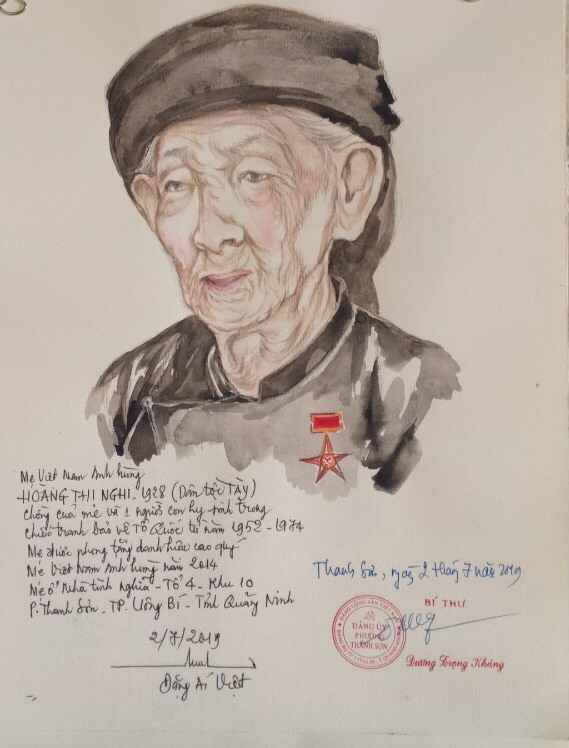 Mẹ Việt Nam Anh hùng
HOÀNG THỊ NGHI - 1928 (Dân tộc TÀY)
Chồng của mẹ và 1 người con hy sinh trong
chiến tranh bảo vệ Tổ Quốc từ năm 1952 - 1974
Mẹ được phong tặng danh hiệu cao quý
Mẹ Việt Nam Anh hùng năm 2014
Mẹ ở Nhà tình nghĩa - Tổ 4 - Khu 10
P. Thanh Sơn - TP. Uông Bí - Tỉnh Quảng Ninh
2/7/2019
Đặng Ái Việt
Thanh Sơn, ngày 2 tháng 7 năm 2019
BÍ THƯ
ĐẢNG CỘNG SẢN VIỆT NAM
ĐẢNG ỦY
PHƯỜNG
THANH SƠN
Dương Trọng Kháng